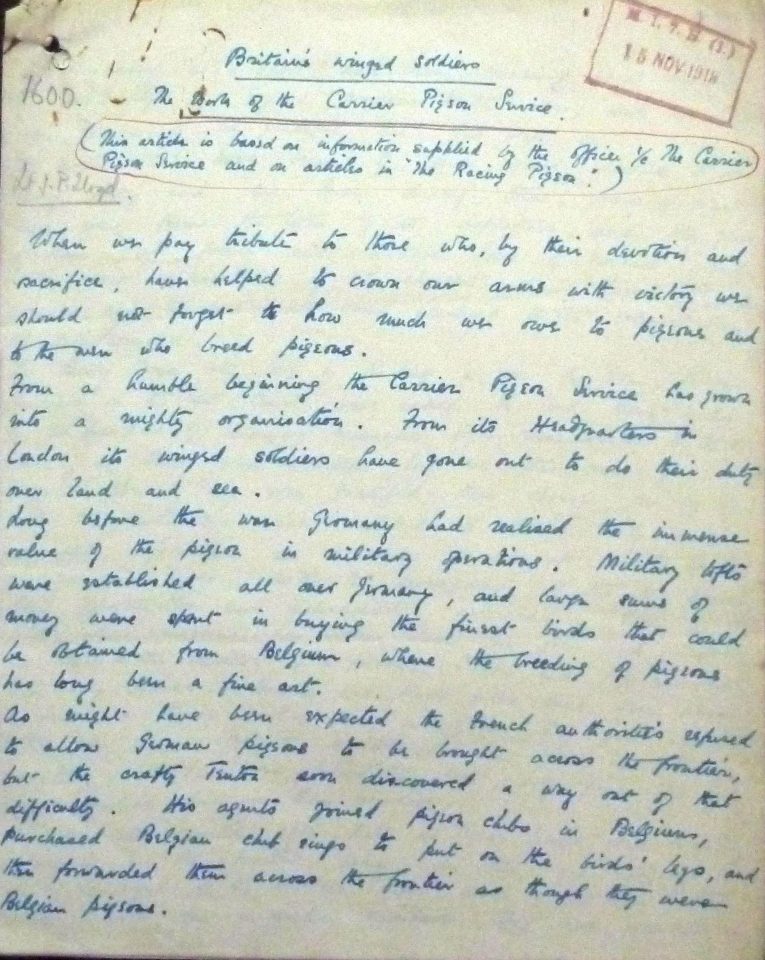 M.I.7.B (1.)
15 NOV 1918
Britain's winged soldiers
1600.
The Work of the Carrier Pigeon Service.
(This article is based on information supplied by the officer i/c The Carrier
Pigeon Service and on articles in "The Racing Pigeon".)
Lt J. P. Lloyd.
When we pay tribute to those who, by their devotion and
sacrifice, have helped to crown our arms with victory we
should not forget to how much we owe to pigeons and
to the men who breed pigeons.
From a humble beginning the Carrier Pigeon Service has grown
into a mighty organisation. From its Headquarters in
London its winged soldiers have gone out to do their duty
over land and sea.
Long before the war Germany had realised the immense
value of the pigeon in military operations. Military lofts
were established all over Germany, and large sums of
money were spent in buying the finest birds that could
be obtained from Belgium, where the breeding of pigeons
has long been a fine art.
As might have been expected the French authorities refused
to allow German pigeons to be brought across the frontier,
but the crafty Teuton soon discovered a way out of that
difficulty. His agents joined pigeon clubs in Belgium,
purchased Belgian club rings to put on the birds' legs, and
then forwarded them across the frontier as though they were
Belgian pigeons.